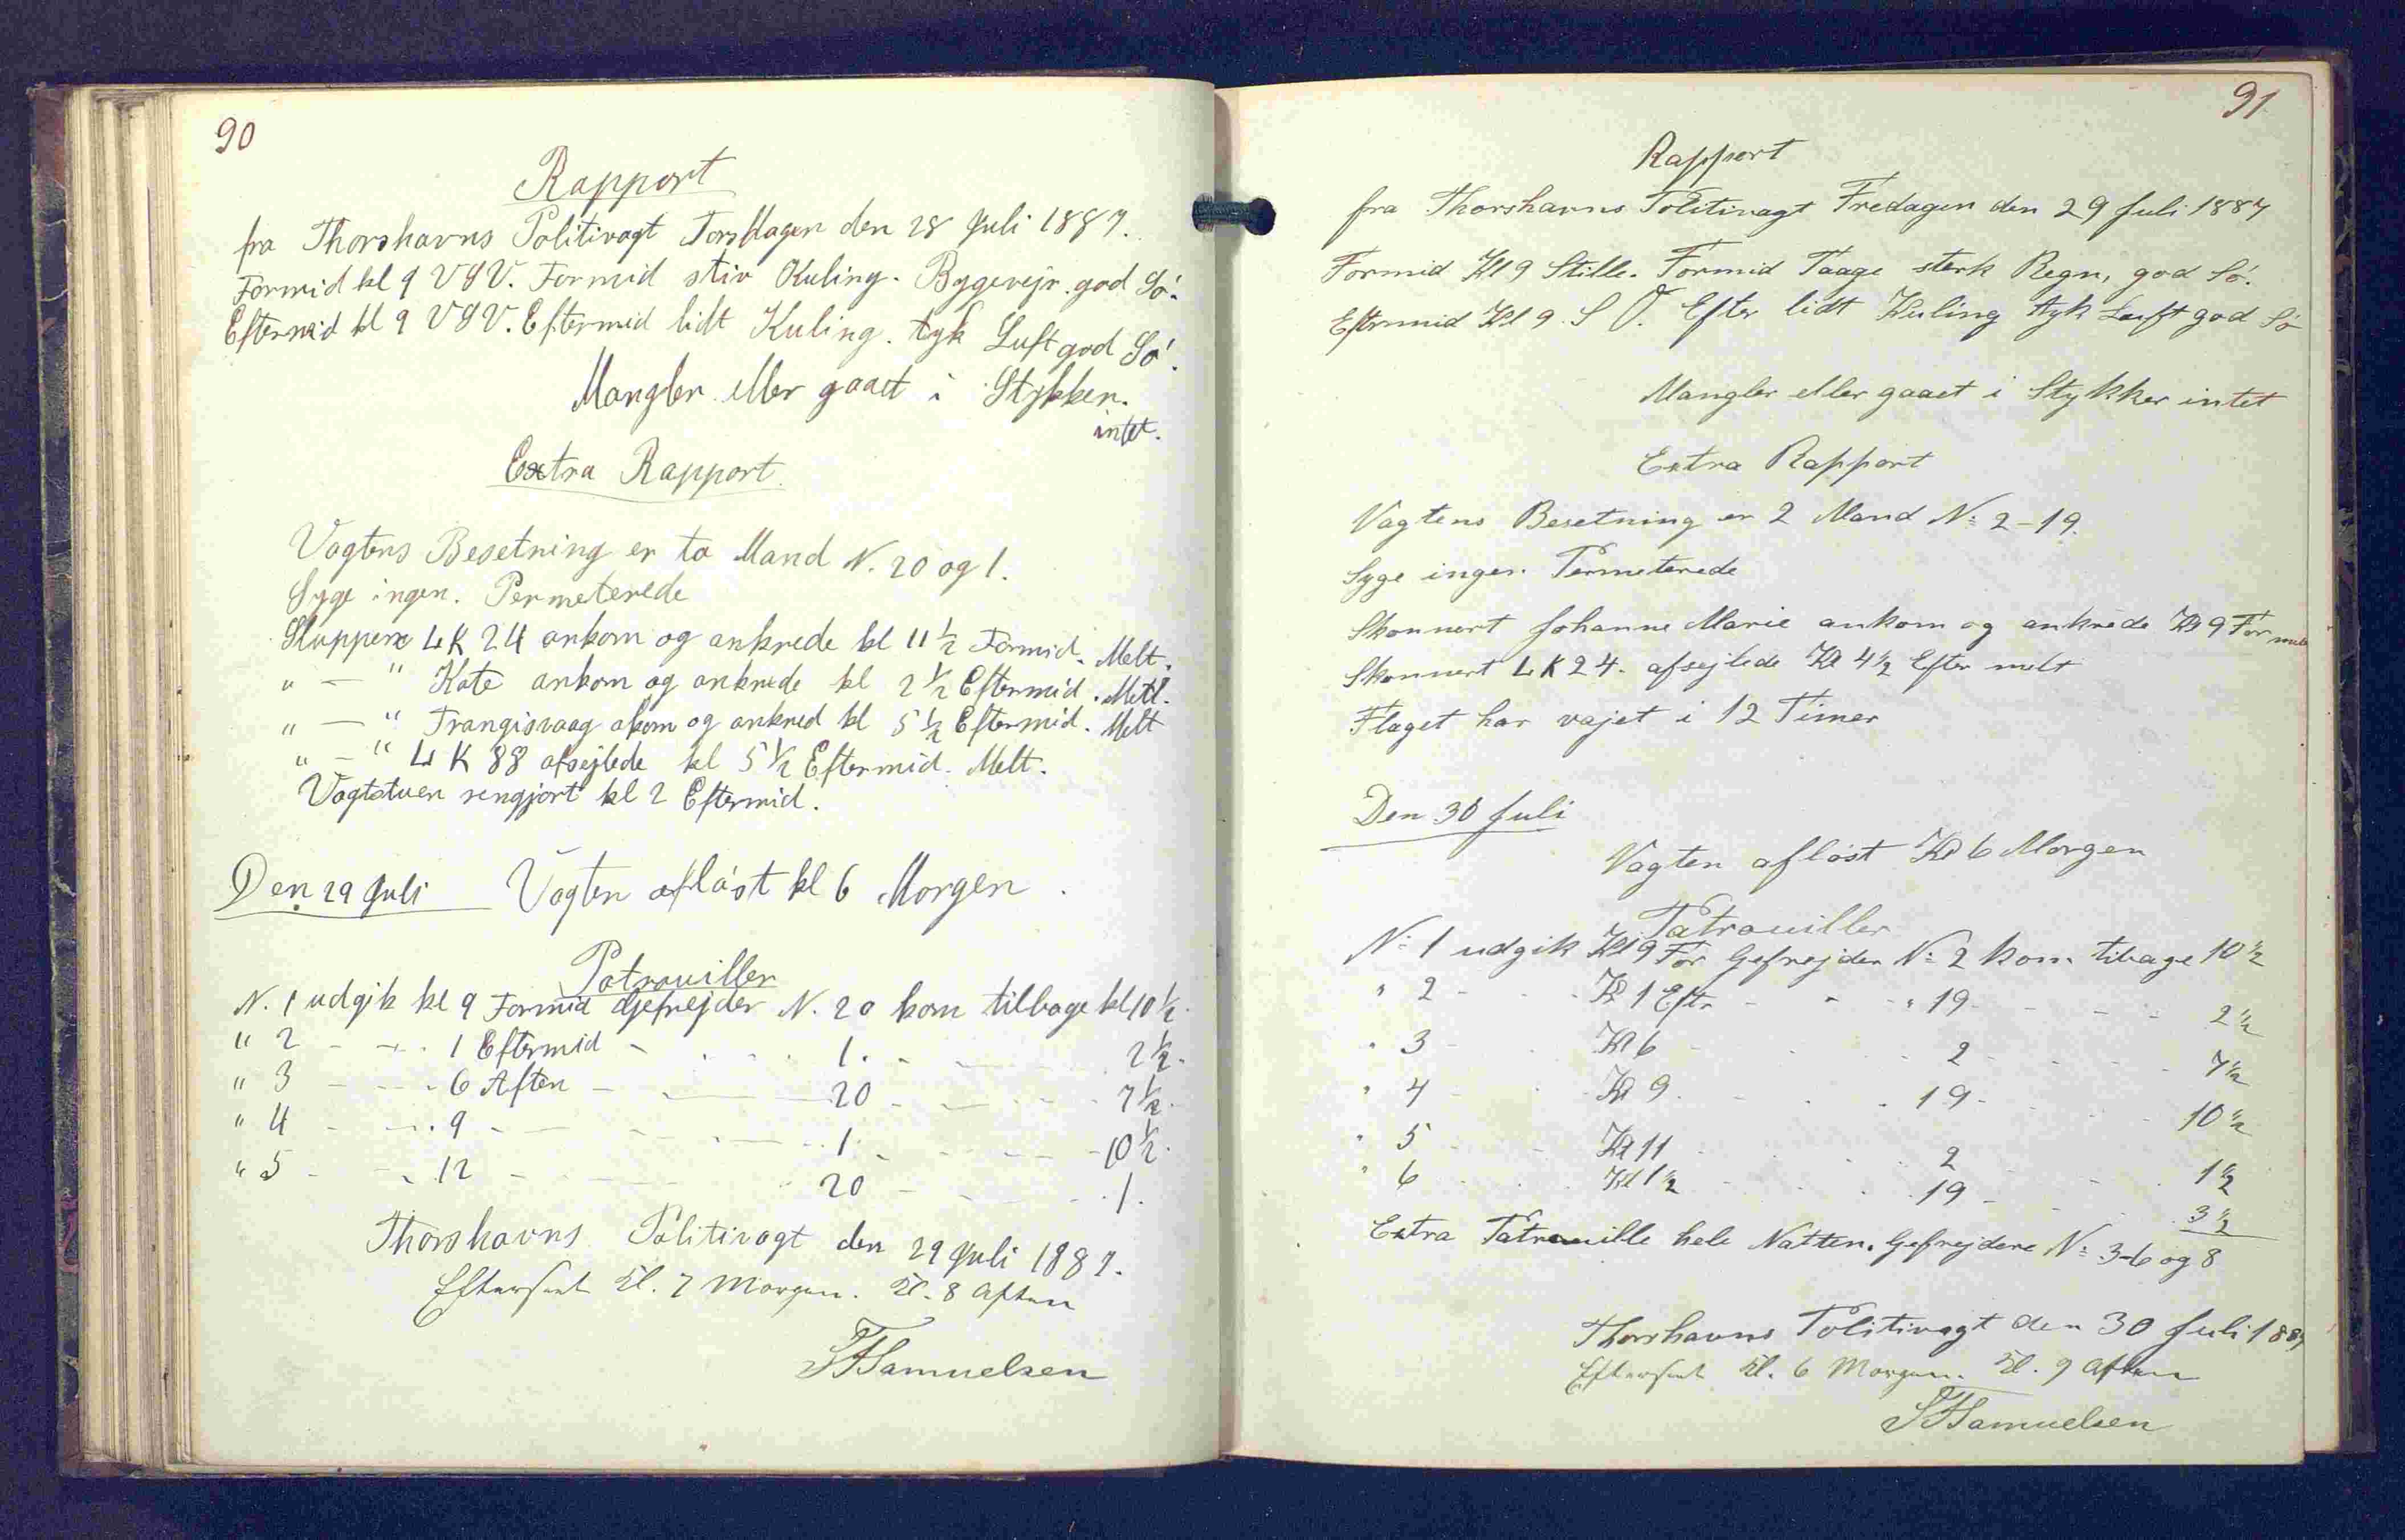 90
Rapport
fra Thorshavns Politivagt Torsdagen den 28 Juli 1887.
Formid kl 9 VSV. Formid stiv Kuling. Bygevejr. god Sö.
Eftermid kl 9 VSV. Eftermid lidt Kuling. tyk Luft god Sö.
Mangler eller gaaet i Stykker.
intet.
Extra Rapport.
Vagtens Besetning er to Mand N. 20 og 1.
Syge ingen. Permeterede
Sluppen LK 24 ankom og ankrede kl 11 1/2 Formid. Melt.
" — " Kate ankom og ankrede kl 2 1/2 Eftermid. Metl.
" — " Trangisvaag akom og ankred kl 5 1/2 Eftermid. Melt
" — " LK 88 afsejlede kl 5 1/2 Eftermid. Melt.
Vagtstuen rengjort kl 2 Eftermid.
Den 29 Juli Vagten aflöst kl 6 Morgen.
Patrouiller
N. 1 udgik kl 9 Formid Gjefrejder N. 20 kom tilbage kl 10 1/2.
" 2 - - 1 Eftermid - - 1. - - 2 1/2.
" 3 - - 6 Aften - - 20 - - 7 1/2.
" 4 - - 9 - - 1. - - 10 1/2.
" 5 - - 12 - - 20 - - 1.
Thorshavns Politivagt den 29 Juli 1887.
Efterseet Kl. 7 Morgen. Kl. 8 Aften
Samuelsen
91
Rapport
fra Thorshavns Politivagt Fredagen den 29 Juli 1887
Formid Kl 9 Stille. Formid Taage sterk Regn, god Sö.
Eftermid Kl 9. S O. Efter lidt Kuling tyk Luft god Sö
Mangler eller gaaet i Stykker intet
Extra Rapport
Vagtens Besetning er 2 Mand N: 2-19.
Syge ingen Permeterede
Skonnert Johanne Marie ankom og ankrede Kl 9 For melt
Skonnert LK 24. afsejlede Kl 4 1/2 Efter melt
Flaget har vajet i 12 Timer
Den 30 Juli
Vagten aflöst Kl 6 Morgen
Patrouiller
N: 1 udgik Kl 9 For Gefrejder N: 2 kom tibage 10 1/2
" 2 - - Kl 1 Eftr - - " 19 - - 2 1/2
" 3 - - Kl 6 - - 2 - - 7 1/2
" 4 - - Kl 9 - - 19 - - 10 1/2
" 5 - - Kl 11 - - 2 - - 1 1/2
" 6 - - Kl 1 1/2 - - 19 - - 3 1/2
Extra Patrouille hele Natten. Gefrejdere N: 3-6 og 8
Thorshavns Politivagt den 30 Juli 1887
Efterseet Kl. 6 Morgen. Kl. 9 Aften
Samuelsen